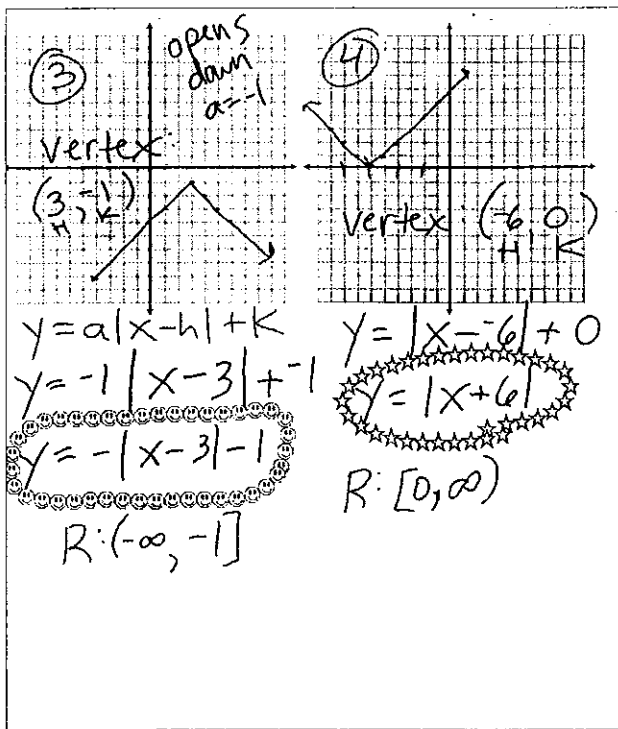 3
opens
down
a=-1
vertex:
(3, -1)
H K
y = a|x-h|+K
y = -1|x-3|+-1
y = -|x-3|-1
R: (-∞, -1]
4
vertex: (-6, 0)
H K
y = |x--6|+0
y = |x+6|
R: [0, ∞)